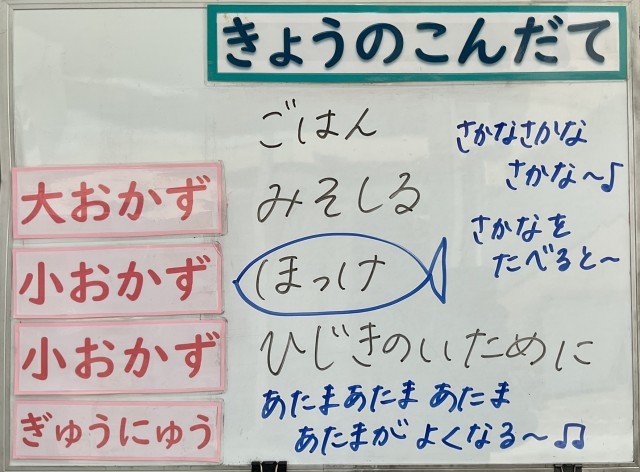 きょうのこんだて
ごはん
さかなさかな
さかな〜♪
大おかず
みそしる
さかなを
たべると〜
小おかず
ほっけ
小おかず
ひじきのいために
ぎゅうにゅう
あたまあたまあたま
あたまがよくなる〜♫